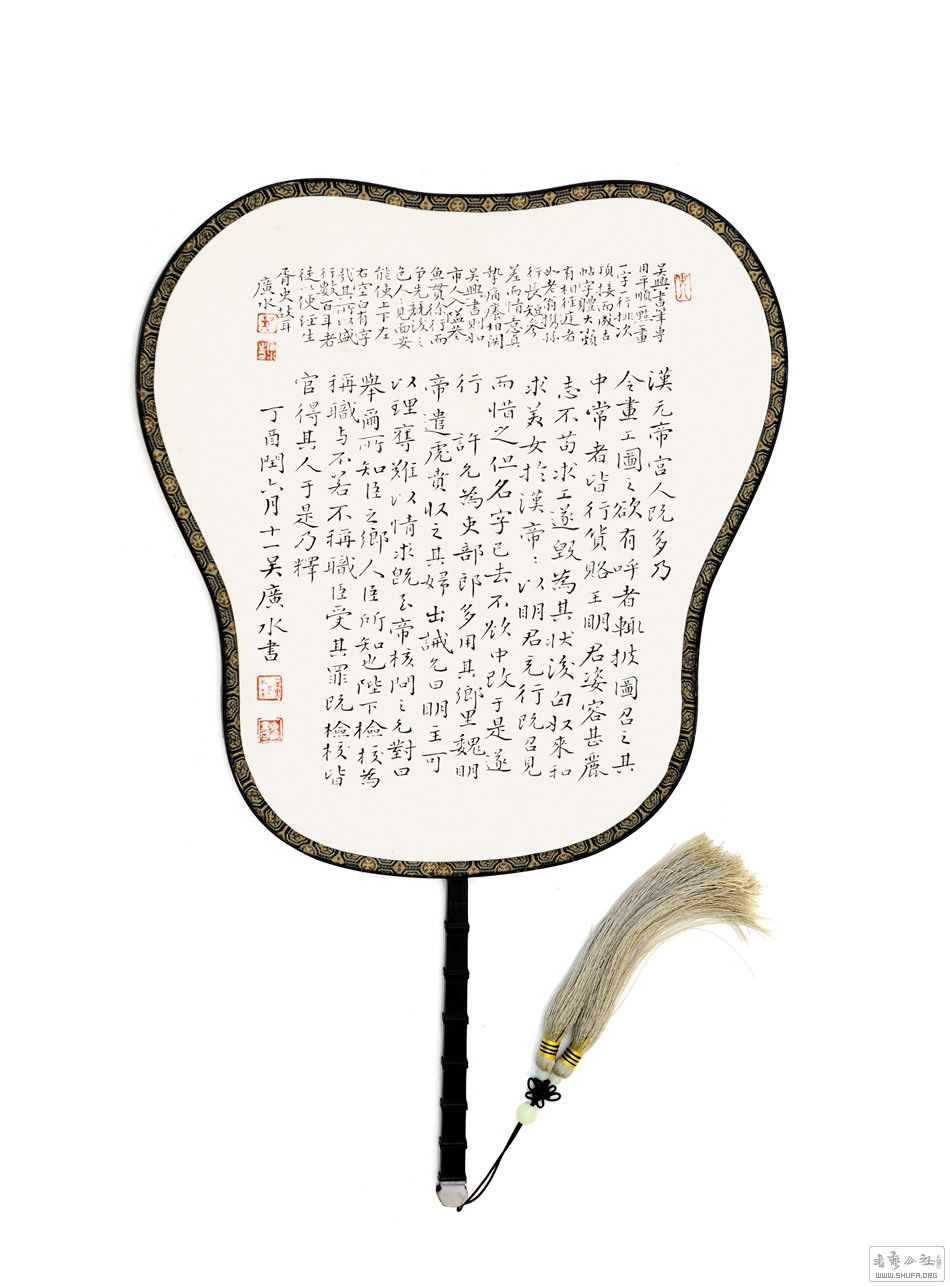 吳興書筆專
用平順一點一畫
一字一行排次
頂接而成古
帖字體大小頗
有相徑庭者
如老翁攜幼孫
行長短參
差而情意真
摯痛癢相關
吳興書則如
市人入隘巷
魚貫徐行而
爭先競後之
色人〻見面安
能使上下左
右空白有字
哉其所以盛
行數百年者
徒以便經生
胥史故耳
廣水
漢元帝宮人既多乃
令畫工圖之欲有呼者輒披圖召之其
中常者皆行貨賂王明君姿容甚麗
志不苟求工遂毀為其狀後匈奴來和
求美女於漢帝〻以明君充行既召見
而惜之但名字已去不欲中改于是遂
行 許允為吏部郎多用其鄉里魏明
帝遣虎賁收之其婦出誡允曰明主可
以理奪難以情求既至帝核問之允對曰
舉爾所知臣之鄉人臣所知也陛下檢校為
稱職与不若不稱職臣受其罪既檢校皆
官得其人于是乃釋
丁酉閏六月十一吳廣水書
WWW.SHUFA.ORG